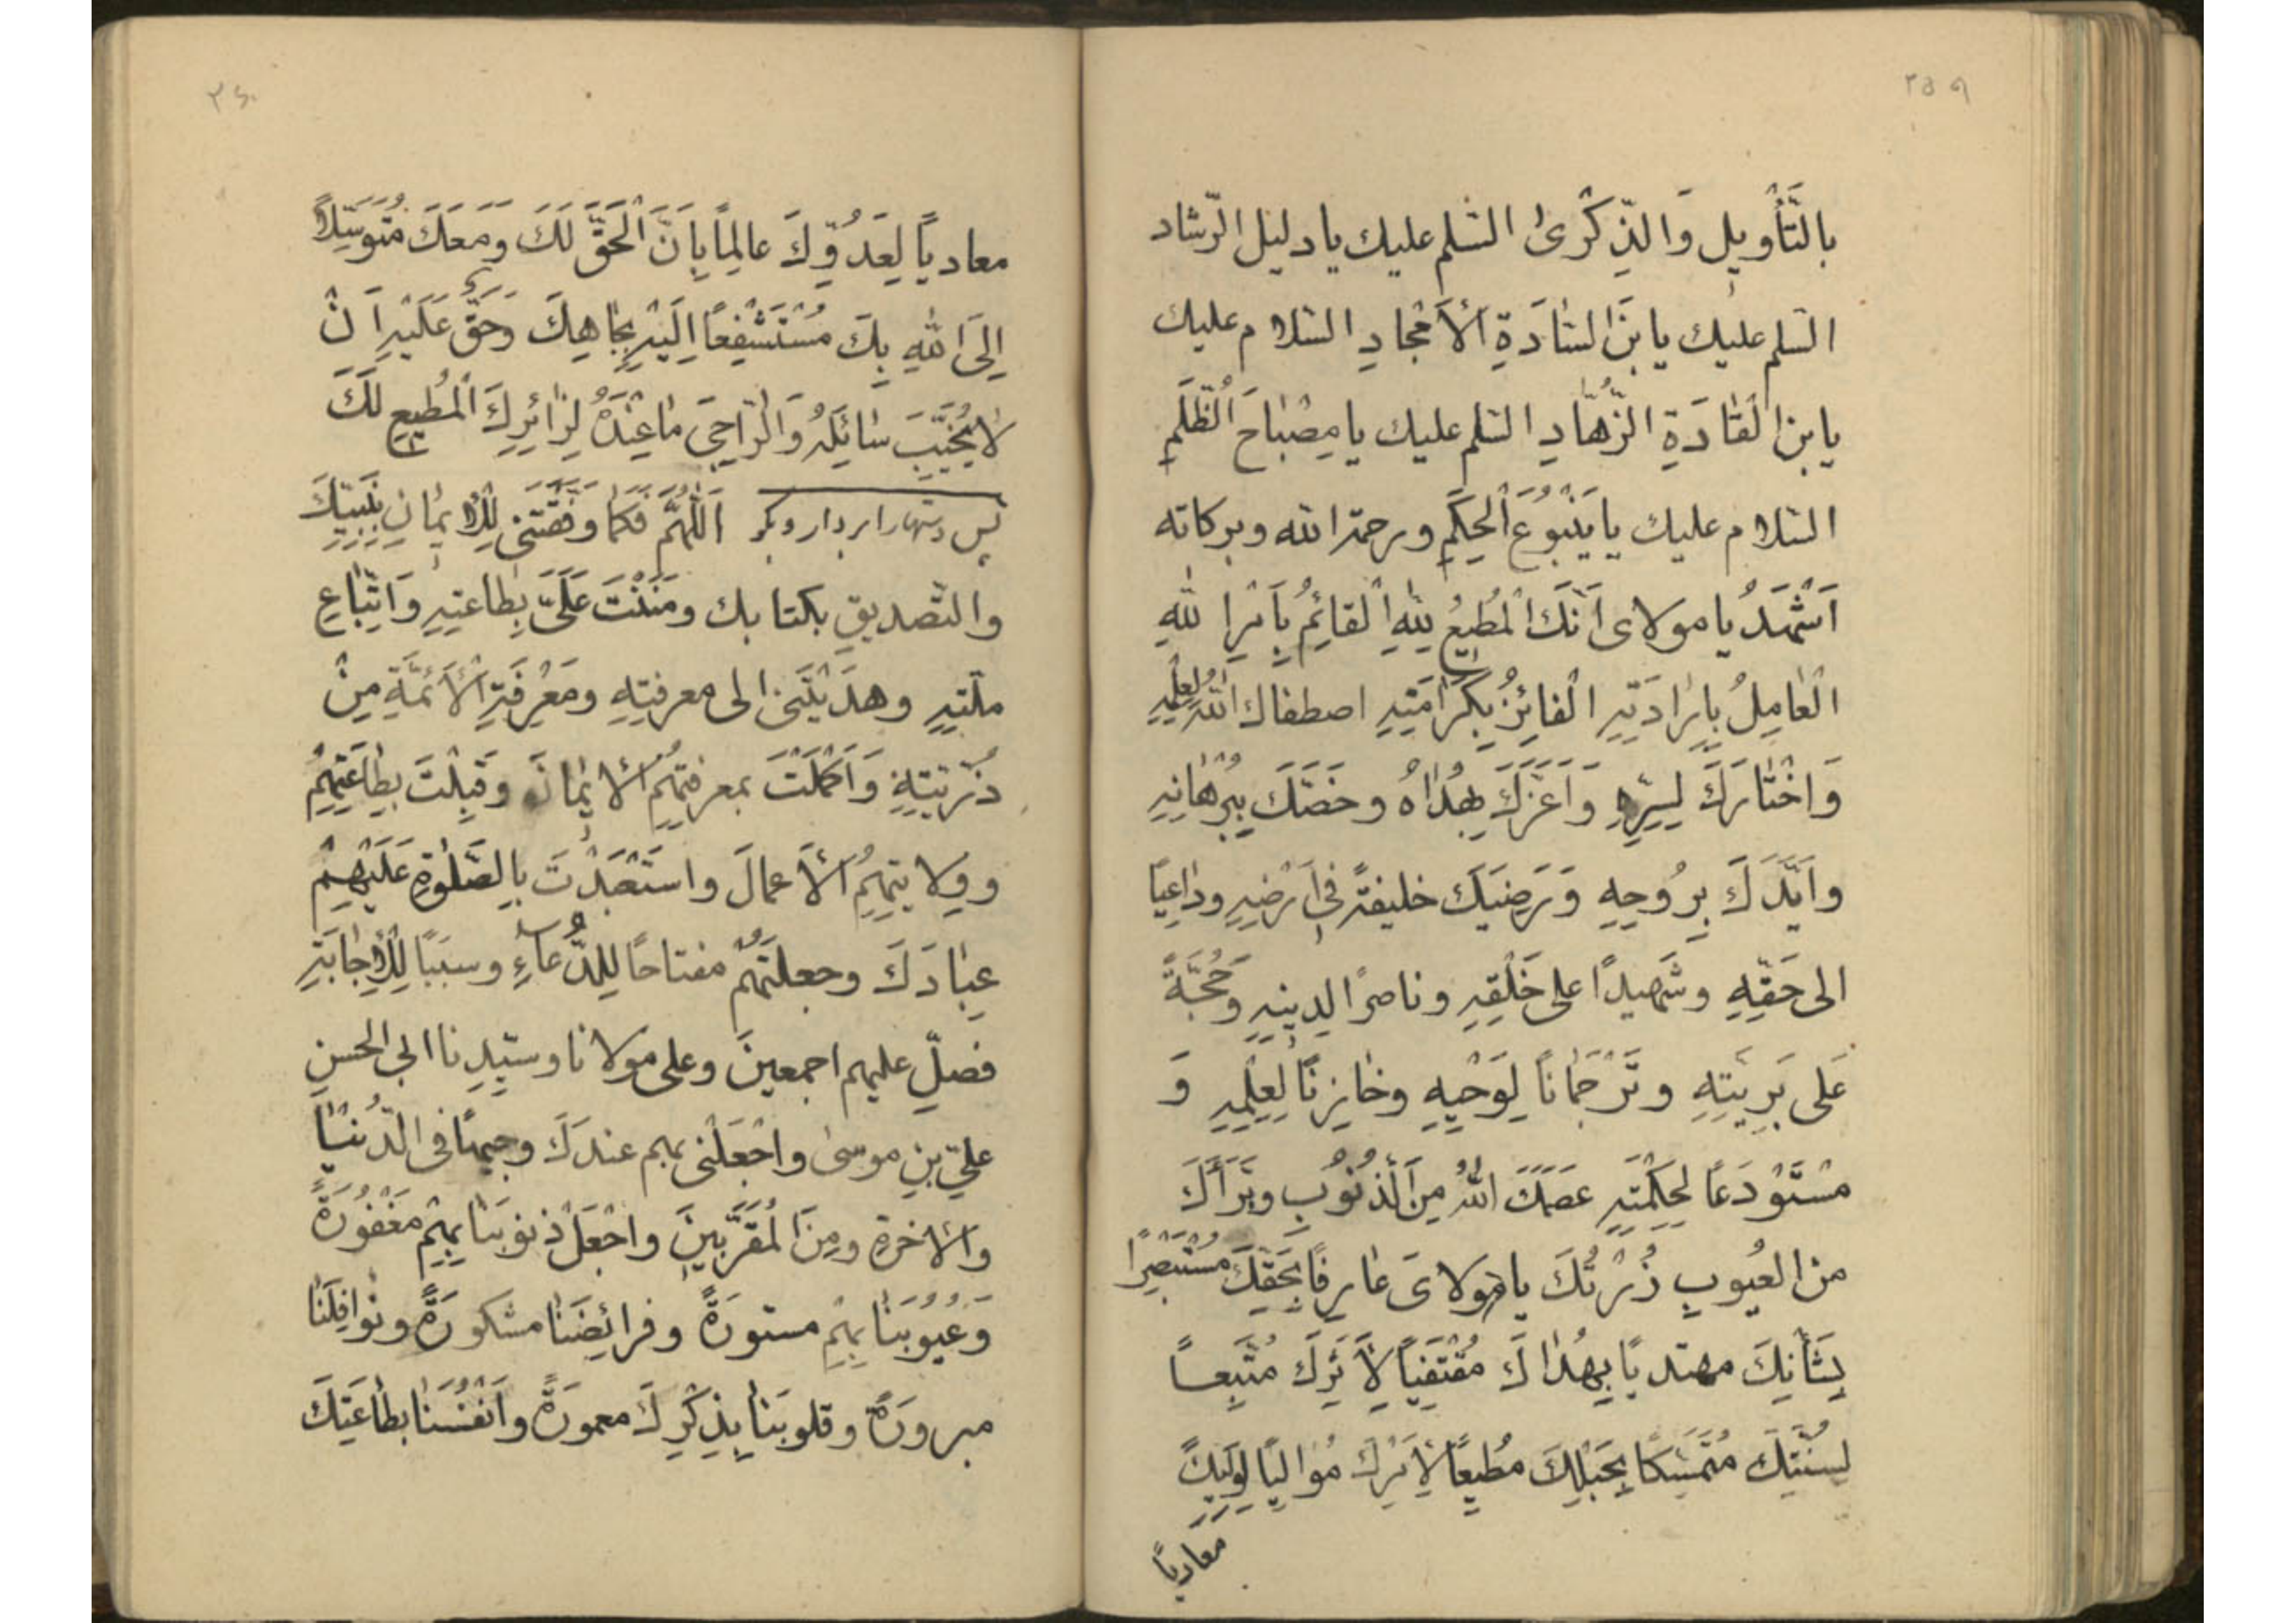 ٢٥٩
بِالتَّأْوِيلِ وَالذِّكْرىٰ السّلم عليك يا دليل الرّشاد
السّلم عليك يا بنَ السّادَةِ الْأَمْجٰادِ السّلام عليك
يا بن القٰادَةِ الزُّهّٰادِ السّلم عليك يا مِصْبٰاحَ الظُّلَمِ
السّلام عليك يا يَنْبُوعَ الْحِكَمِ ورحمة الله وبركاته
اَشْهَدُ يا مولاى اَنَّكَ الْمُطيعُ لِلّٰهِ الْقائِمُ بِاَمْرِ اللّٰهِ
الْعٰامِلُ بِاِرٰادَتِهِ الْفائِزُ بِكَرٰامَتِهِ اصطفاك اللّٰهُ لِعِلْمِهِ
وَاخْتٰارَكَ لِسِرِّهِ وَاَعَزَّكَ بِهُدٰاهُ وخَصَّكَ بِبُرْهٰانِهِ
واَيَّدَكَ بِرُوحِهِ وَرَضِيَكَ خليفةً فى اَرْضِهِ وداعِيًا
الى حَقِّهِ وشَهيدًا على خَلْقِهِ وناصرًا لِدينِهِ وَحُجَّةً
عَلى بَرِيَّتِهِ وتَرْجَمٰانًا لِوَحْيِهِ وخٰازِنًا لِعِلْمِهِ وَ
مُسْتَوْدَعًا لِحِكْمَتِهِ عَصَمَكَ اللّٰهُ مِنَ الذُّنُوبِ وبَرَّأَكَ
من العُيوبِ زُرْتُكَ يا مولاىَ عٰارِفًا بِحَقِّكَ مُسْتَبْصِرًا
بِشَأْنِكَ مهتديًا بِهُدٰاكَ مُقْتَفِيًا لِأَثَرِكَ مُتَّبِعًا
لِسُنَّتِكَ مُتَمَسِّكًا بِحَبْلِكَ مُطيعًا لِأَمْرِكَ مُواليًا لِوَلِيِّكَ
معاديًا
٣٦٠
معاديًا لِعَدُوِّكَ عالِمًا بِاَنَّ الْحَقَّ لَكَ ومَعَكَ مُتَوَسِّلًا
اِلَى اللّٰهِ بِكَ مُسْتَشْفِعًا اِلَيْهِ بِجٰاهِكَ وَحَقٌّ عَلَيْهِ اَنْ
لٰا يُخَيِّبَ سٰائِلَهُ وَالرّٰاجِىَ مٰا عِنْدَهُ لِزٰائِرِكَ الْمُطيعِ لَكَ
پس دستها را بردار و بگو اَللّٰهُمَّ فَكَمٰا وَفَّقْتَنى لِلْإيمٰانِ بِنَبِيِّكَ
والتّصديقِ بكتابك ومَنَنْتَ عَلَىَّ بِطٰاعتِهِ وَاتِّبٰاعِ
ملّتِهِ وهدَيْتَنى الى معرفتِهِ ومَعْرِفَةِ الْأَئِمَّةِ مِنْ
ذُرِّيَّتِهِ وَاَكْمَلْتَ بمعرفتِهِمُ الْايمٰانَ وقَبِلْتَ بِطٰاعَتِهِمْ
وولايتِهِمُ الْأَعمالَ واسْتَعْبَدْتَ بِالصَّلٰوةِ عَلَيْهِمْ
عِبٰادَكَ وجعلتَهُمْ مفتاحًا لِلدُّعاءِ وسببًا لِلْاِجٰابَةِ
فصلِّ عليهم اجمعينَ وعلى مولانا وسيّدِنا ابى الحسنِ
علىّ بنِ موسىٰ واجْعَلْنى بهم عندكَ وجيهًا فى الدُّنْيٰا
والاخرةِ ومِنَ الْمُقَرَّبينَ واجْعَلْ ذنوبَنٰا بِهِمْ مَغْفُورَةً
وَعُيُوبَنٰا بِهِمْ مستورَةً وفرائِضَنٰا مشكورَةً ونَوٰافِلَنٰا
مبرورَةً وقلوبَنٰا بِذِكْرِكَ معمورَةً واَنْفُسَنٰا بطٰاعَتِكَ